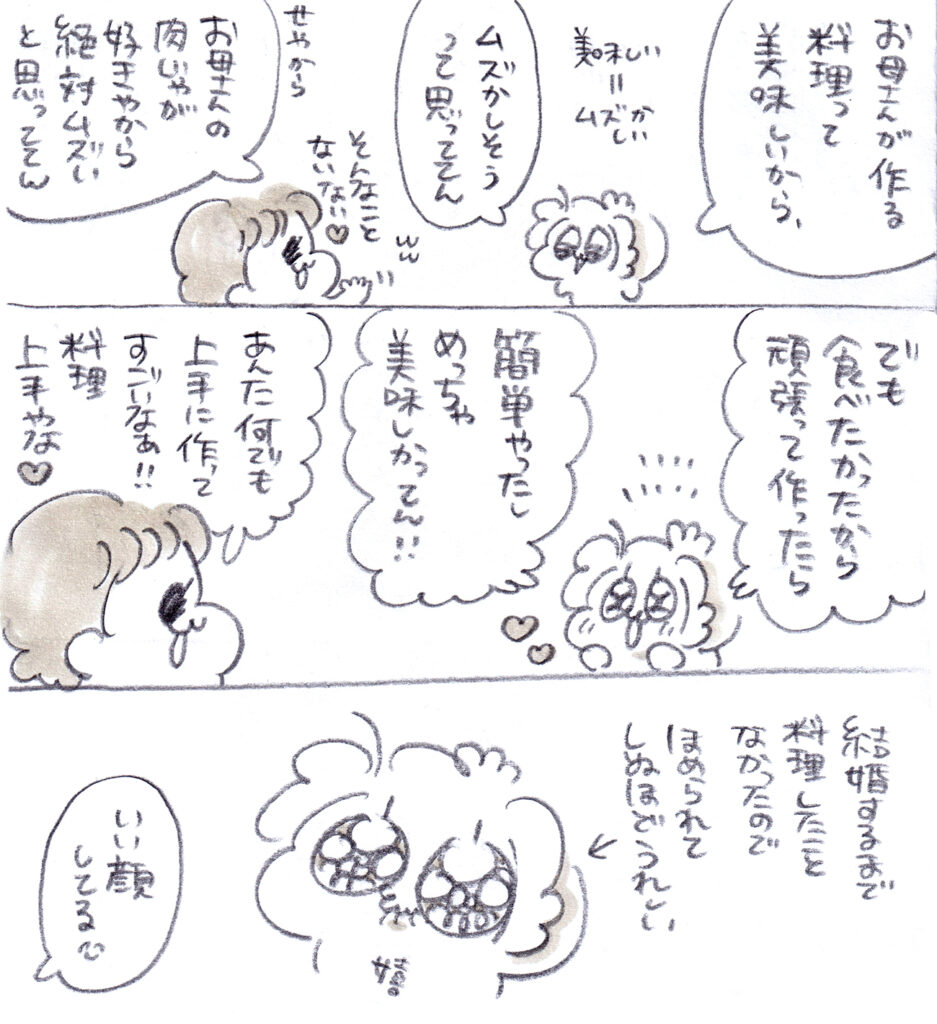 お母さんが作る
料理って
美味しいから、
美味しい
＝
ムズかしい
ムズかしそう
って思っててん
せやから
お母さんの
肉じゃが
好きやから
絶対ムズい
と思っててん
そんなこと
ないない♡
ww
でも
食べたかったから
頑張って作ったら
簡単やったし
めっちゃ
美味しかってん!!
あんた何でも
上手に作って
すごいなぁ!!
料理
上手やな♡
結婚するまで
料理したこと
なかったので
ほめられて
しぬほどうれしい
嬉。
いい顔
してる